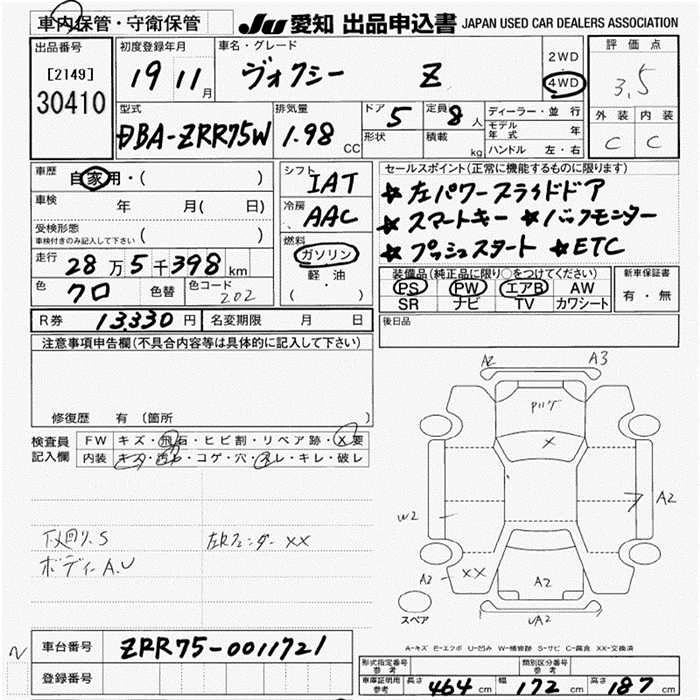 車内保管・守衛保管
JU 愛知 出品申込書 JAPAN USED CAR DEALERS ASSOCIATION
出品番号
[2149]
30410
初度登録年月
19 11月
車名・グレード
ヴォクシー Z
2WD
4WD
評価点
3.5
外装 内装
C C
型式
DBA-ZRR75W
排気量
1.98 CC
ドア 5
形状
定員 8人
積載 kg
ディーラー・並行
モデル年式 年
ハンドル 左・右
車歴 自家用・( )
車検 年 月( 日)
受検形態
車検付きのみ記入して下さい ( )
走行 28万5千398km
色 クロ 色替 色コード 202
シフト IAT
冷房 AAC
燃料
ガソリン
軽油
( )
セールスポイント(正常に機能するものに限ります)
★左パワースライドドア
★スマートキー ★バックモニター
★プッシュスタート ★ETC
装備品(純正品に限り○をつけてください)
PS PW エアB AW
SR ナビ TV カワシート
新車保証書
有・無
R券 13,330円 名変期限 月 日
後日品
注意事項申告欄(不具合内容等は具体的に記入して下さい)
修復歴 有 (箇所 )
検査員記入欄
FW キズ・飛石・ヒビ割・リペア跡・X要
内装 キズ・汚レ・コゲ・穴・スレ・キレ・破レ
下回り.S
ボディーA.U
左Rフェンダー XX
A2 A3
X
W2
A2
A3 XX
A2
UA2
スペア
A-キズ E-エクボ U-凹み W-補修跡 S-サビ C-腐食 XX-交換済
車台番号 ZRR75-0011721
登録番号
形式指定番号参考
類別区分番号参考
車庫証明用参考 長さ 464cm 幅 172cm 高さ 187cm